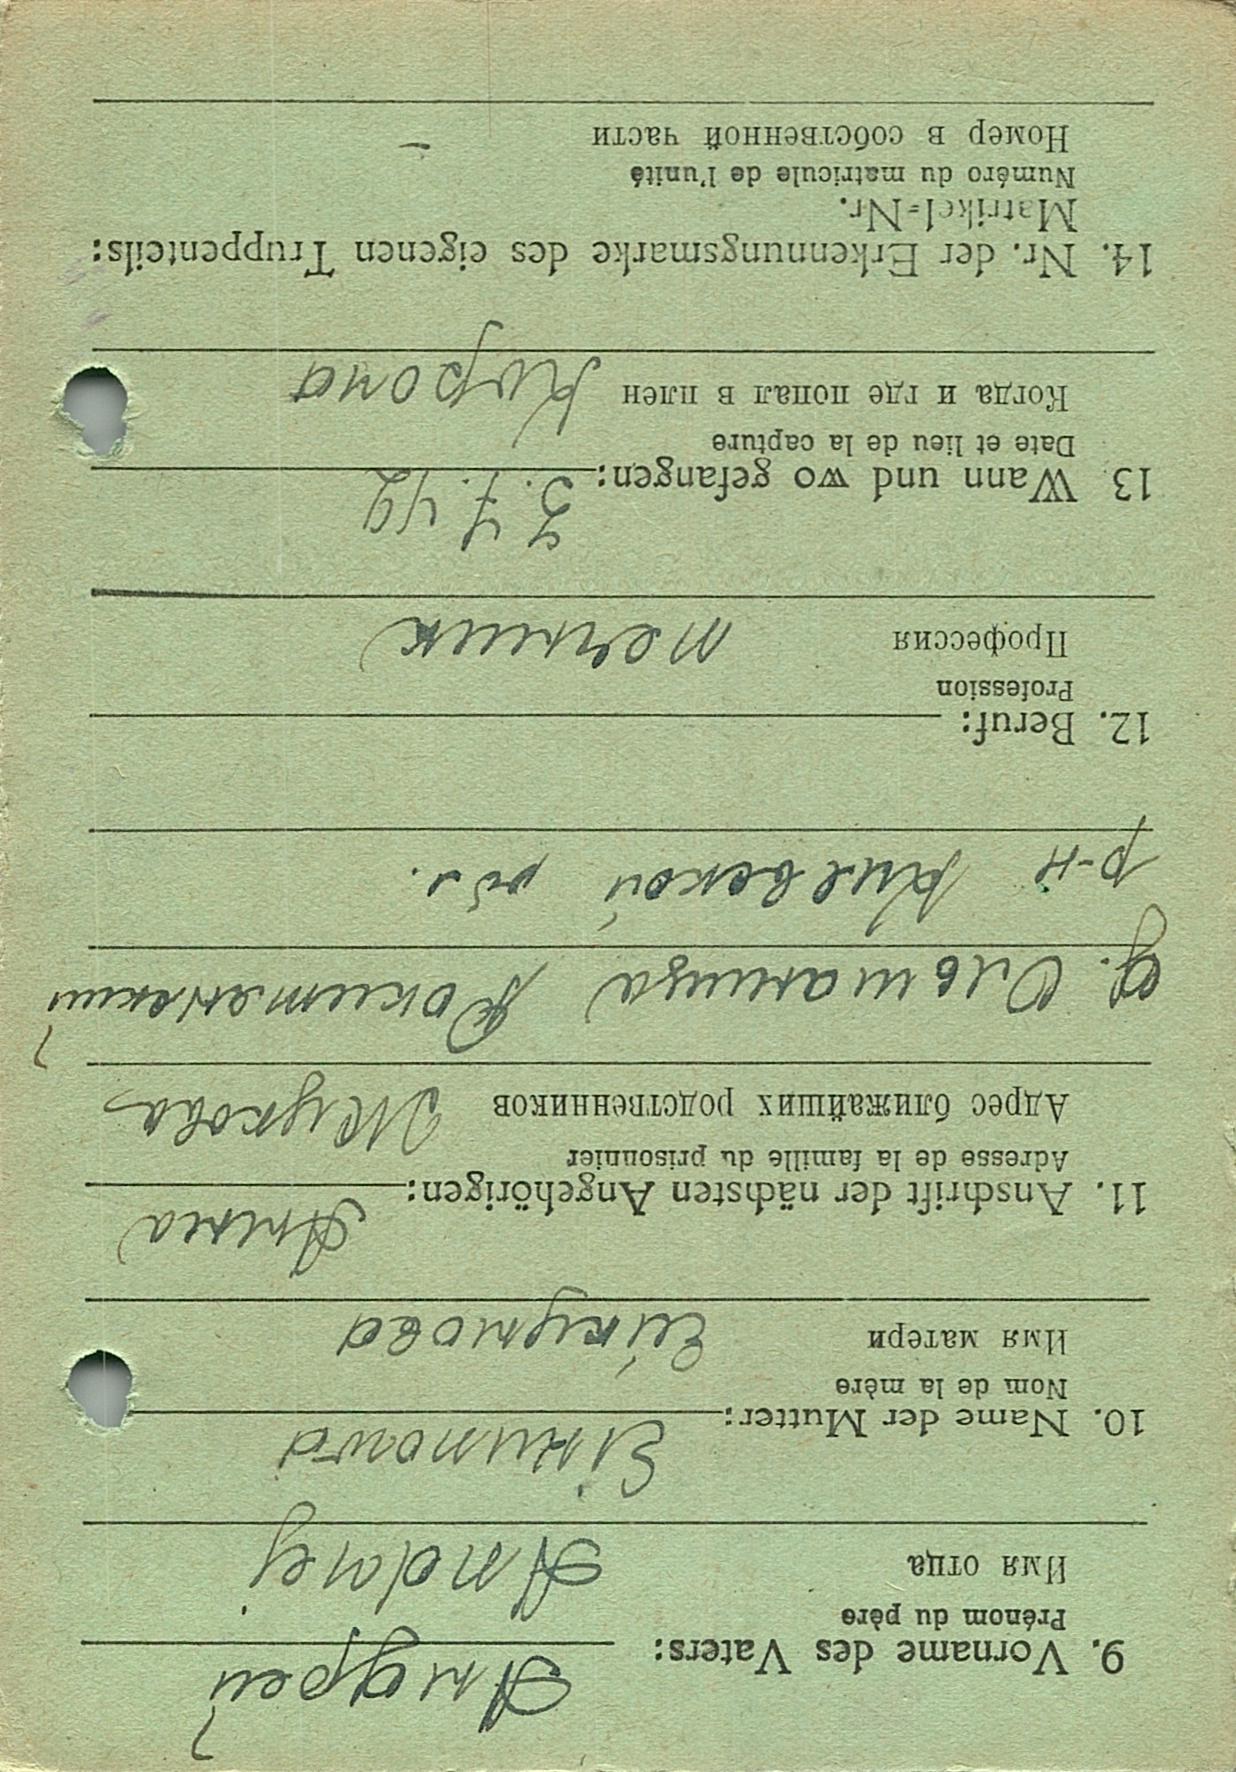 Андрей
9. Vorname des Vaters:
Prénom du père
Имя отца Andrej
Eikunowa
10. Name der Mutter:
Nom de la mère
Имя матери Ейкунова
Анна
11. Anschrift der nächsten Angehörigen:
Adresse de la famille du prisonnier
Адрес ближайших родственников Жукова
д. Ольшаница Рокитянский
р-н Киевской обл.
12. Beruf:
Profession
Профессия техник
3. 7. 42
13. Wann und wo gefangen:
Date et lieu de la capture
Когда и где попал в плен
14. Nr. der Erkennungsmarke des eigenen Truppenteils:
Matrikel-Nr.
Numéro du matricule de l'unité
Номер в собственной части –